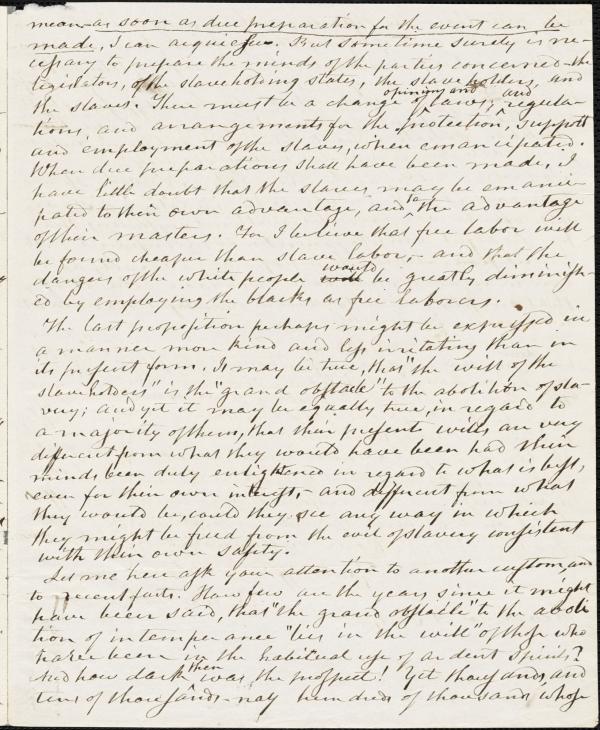 mean—as soon as due preparation for the event can be
made, I can acquiesce. But some time surely is ne-
cessary to prepare the minds of the parties concerned—the
legislators, of the slaveholding states, the slave holders, and
the slaves. There must be a change of opinions and laws, and regula-
tions, and arrangements for the protection, support
and employment of the slaves, when emancipated.
When due preparations shall have been made, I
have little doubt that the slaves may be emanci-
pated to their own advantage, and to the advantage
of their masters. For I believe that free labor will
be found cheaper than slave labor,— and that the
dangers of the white people will would be greatly diminish-
ed by employing the blacks as free laborers.
The last proposition perhaps might be expressed in
a manner more kind and less irritating than in
its present form. It may be true, that "the will of the
slaveholders" is the "grand obstacle" to the abolition of sla-
very; and yet it may be equally true, in regard to
a majority of them, that their present wills are very
different from what they would have been had their
minds been duly enlightened in regard to what is best,
even for their own interest,— and different from what
they would be, could they see any way in which
they might be freed from the evil of slavery consistent
with their own safety.
Let me here ask your attention to another custom, and
to recent facts. How few are the years since it might
have been said, that "the grand obstacle" to the aboli
tion of intemperance "lies in the will" of those who
have been in the habitual use of ardent spirits?
And how dark then was the prospect! Yet thousands, and
tens of thousands—nay hundreds of thousands, whose